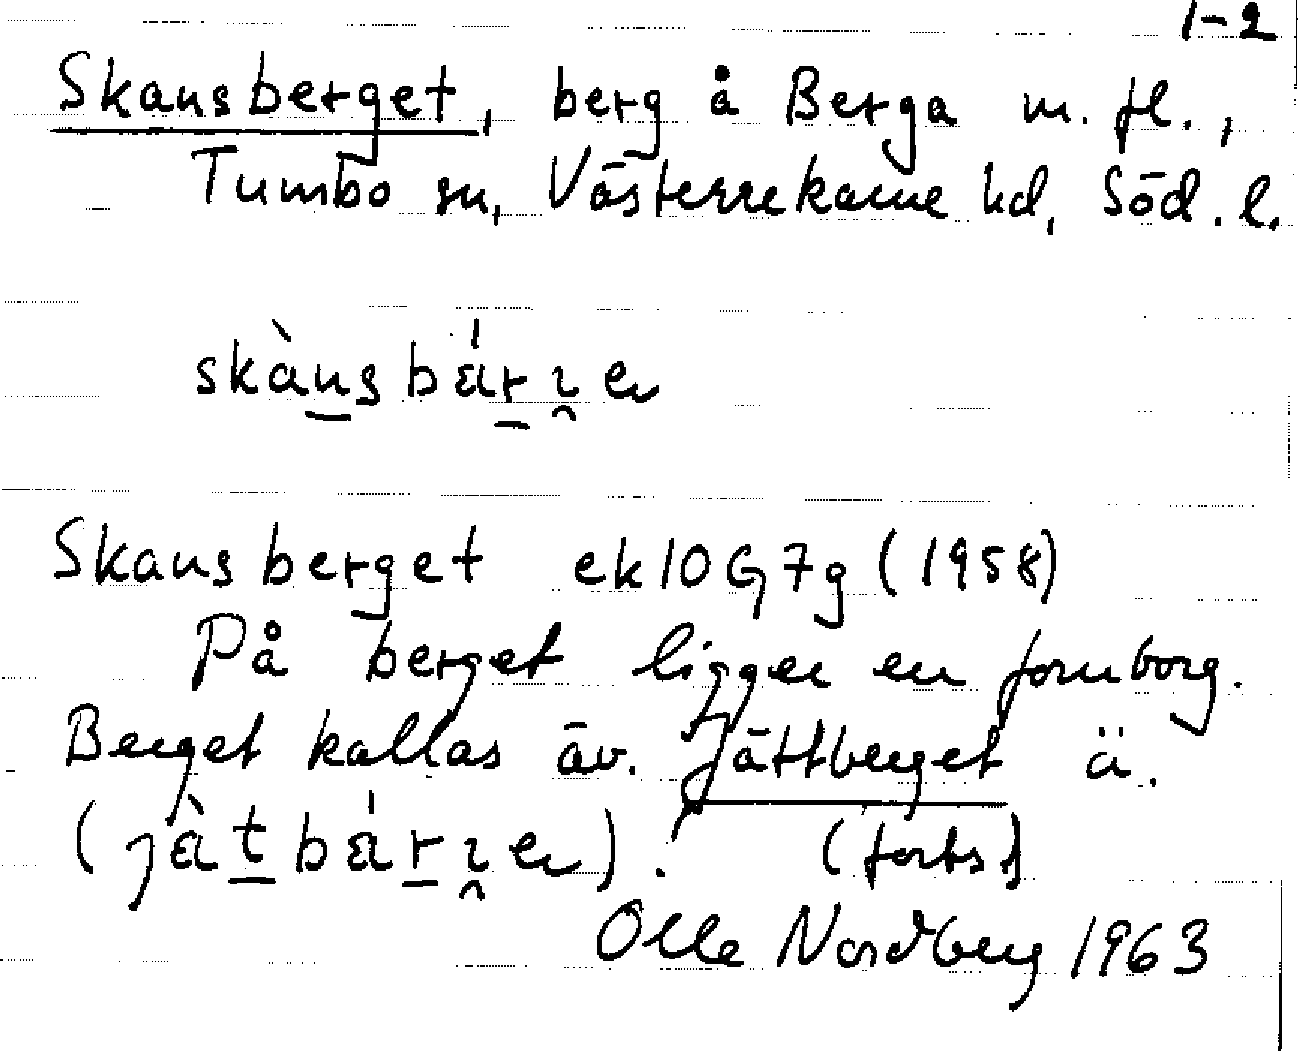 1-2
Skansberget, berg å Berga m. fl.,
Tumbo sn, Västerrekarne hd, Söd. l.
skàns bárı̯e
Skansberget ek 10 G 7 g (1958)
På berget ligger en fornborg.
Berget kallas äv. Jättberget ä.
(jàt bárı̯e). (forts)
Olle Nordberg 1963